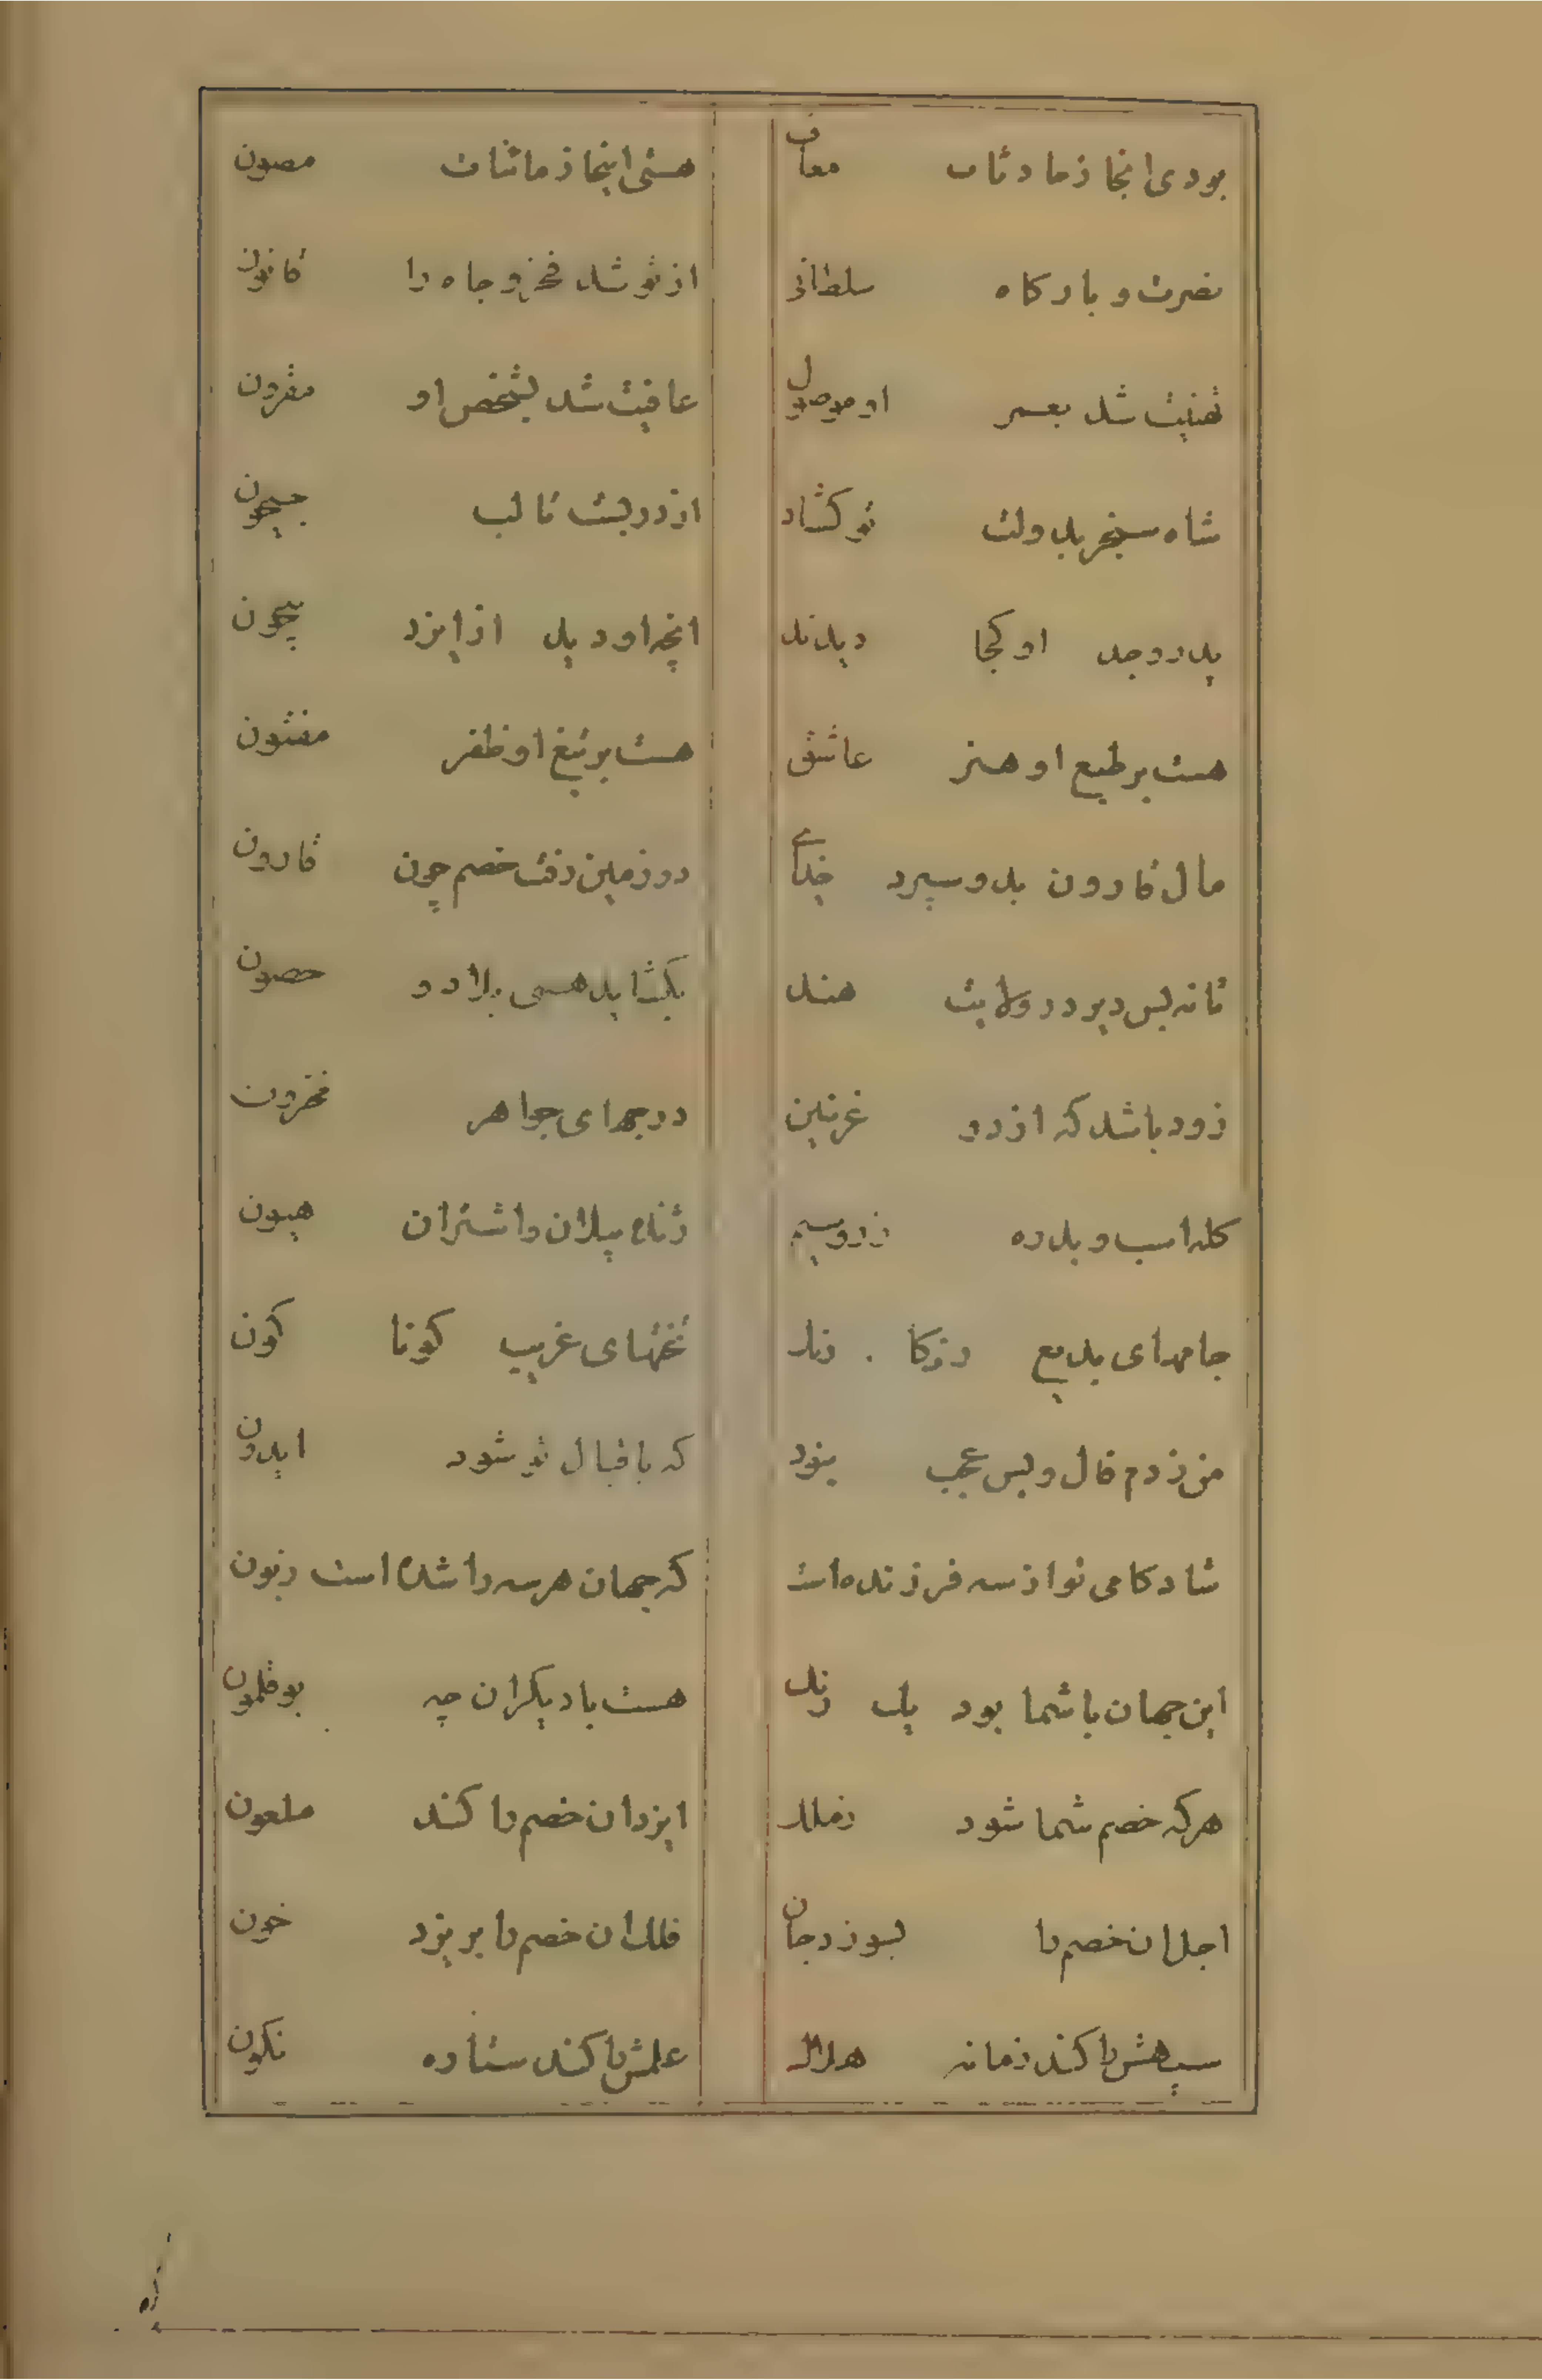 بودی انجا ز حادثات معاف هستی اینجا ز حاثثات مصون
نصرت و بارکاه سلطانی از تو شد فخر و جاه را قانون
تهنیت شد بعمر او موصول عافیت شد بشخص او مقرون
شاه سنجر بدولت تو کشاد از در بست تا لب جیحون
پدر و جد او کجا دیدند انچه او دید از ایزد بیچون
هست بر طبع او هنر عاشق هست بر تیغ او ظفر مفتون
مال قارون بدو سپرد خدای در زمین رفت خصم چون قارون
تا نه بس دیر در ولایت هند بکشاید همی بلاد و حصون
زود باشد که از در غزنین درجهای جواهر مخزون
کله اسب و بدره زر و سیم ژنده پیلان و اشتران هیون
جامهای بدیع رنکا رنک تختهای غریب کونا کون
من زدم فال و بس عجب نبود که باقبال تو شود ایدون
شادکامی تو از سه فرزنده است که جهان هر سه را شده است زبون
این جهان با شما بود یک رنک هست با دیکران چه بوقلمون
هرکه خصم شما شود ز ملک ایزد ان خصم را کند ملعون
اجل ان خصم را بسوزد جان فلک ان خصم را بریزد خون
سپهش را کند زمانه هلاک علمش را کند ستاره نکون